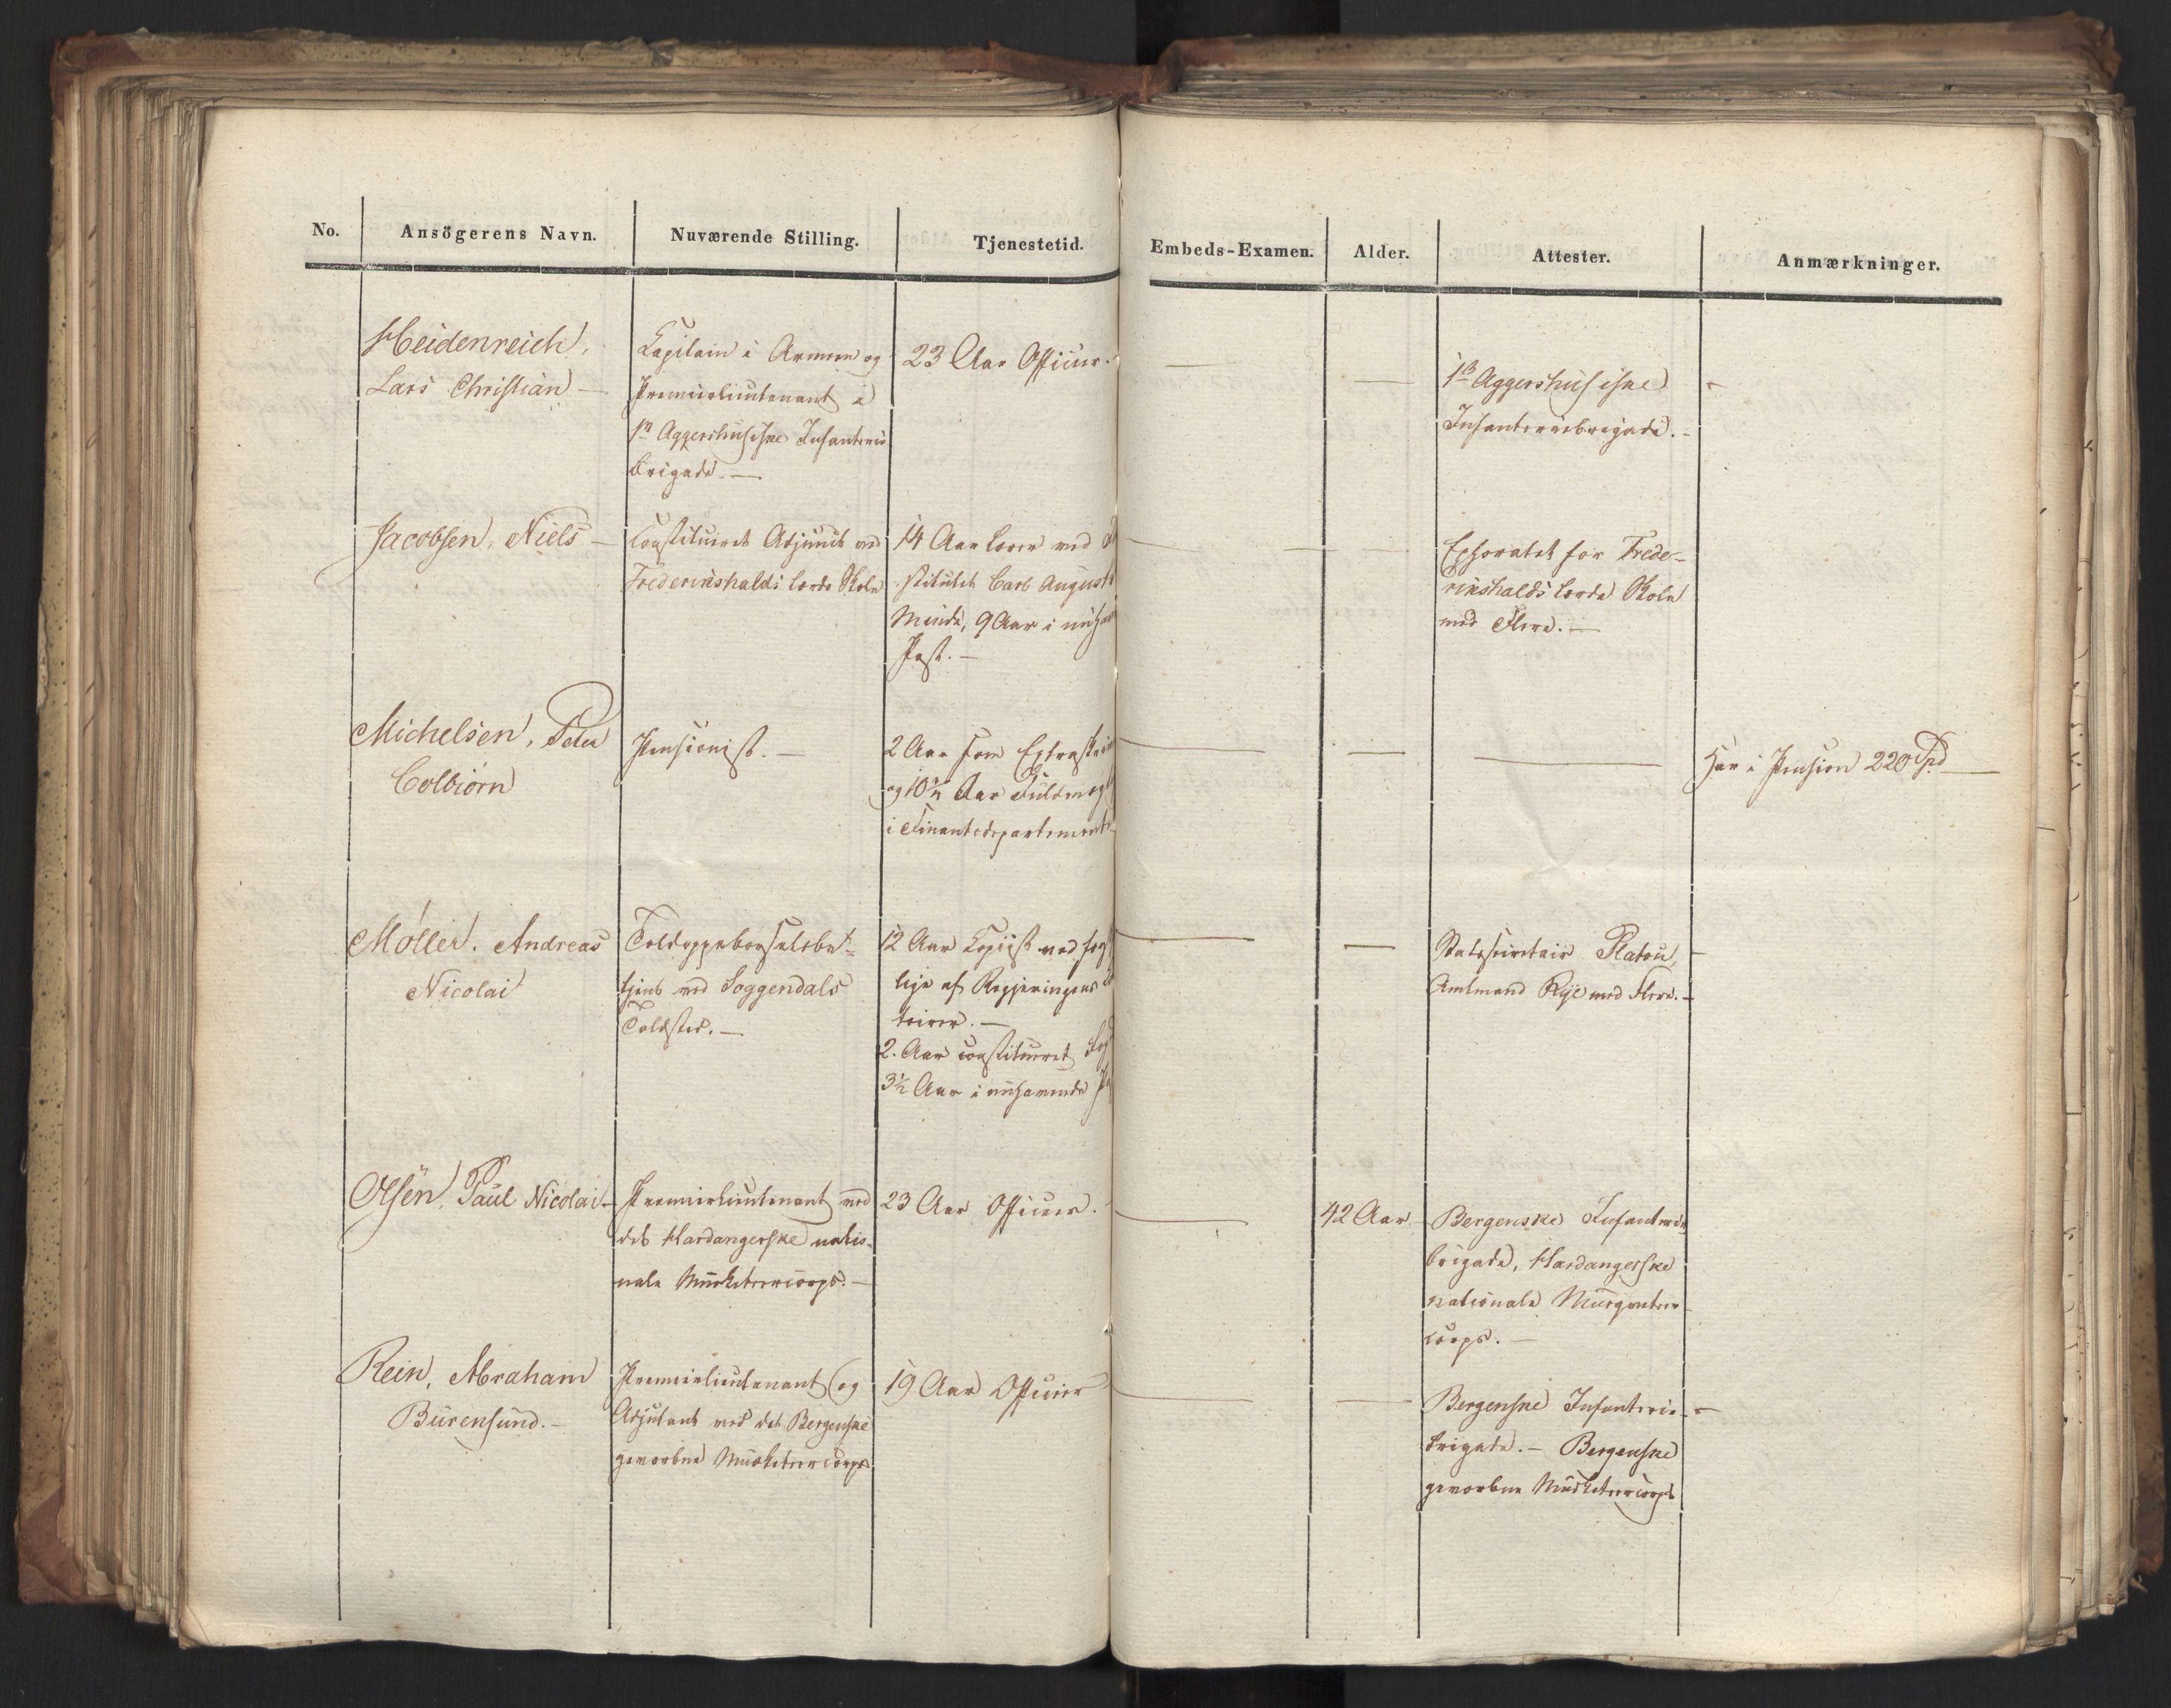 No. Ansögerens Navn. Nuværende Stilling. Tjenestetid. Embeds-Examen. Alder. Attester. Anmærkninger.
Heidenreich,
Lars Christian —
Capitain i Armeen og
Premierlieutenant i
1ste Aggershusiske Infanterie
brigade. —
23 Aar Officier.
—
—
1ste Aggershusiske
Infanteriebrigade. -
Jacobsen, Niels —
Constitueret Adjunct ved
Frederikshalds lærde Skole
14 Aar Lærer ved
stitutet Carl August
Minde, 9 Aar i nuhav
Post. —
Ephoratet for Frede-
rikshalds lærde Skole
med Flere. —
Michelsen, Peter
Colbiørn
Pensionist. —
2 Aar som Extraskriv
og 10¾ Aar Fuldmægt
i Finantsdepartemente
—
—
—
Har i Pension 220 Spd —
Møller. Andreas
Nicolai
Toldoppebørselsbe-
tjent ved Soggendals
Toldsted. —
12 Aar Copiist ved for
lige af Regjeringens
toirer. —
2. Aar constitueret Fog
3½ Aar i nuhavende P
—
—
Statssecretair Platou,
Amtmand Rye med Flere. -
Olsen, Paul Nicolai -
Premierlieutenant ved
det Hardangerske natio-
nale Musketeercorps. —
23 Aar Officier.
—
42 Aar
Bergenske Infanterie
brigade, Hardangerske
nationale Musqueteer
corps. —
Rein, Abraham
Bürensund. —
Premierlieutenant og
Adjutant ved det Bergenske
geworbne Musketeercorps
19 Aar Officier
—
—
Bergenske Infanterie-
brigade. — Bergenske
geworbne Musketeercorps